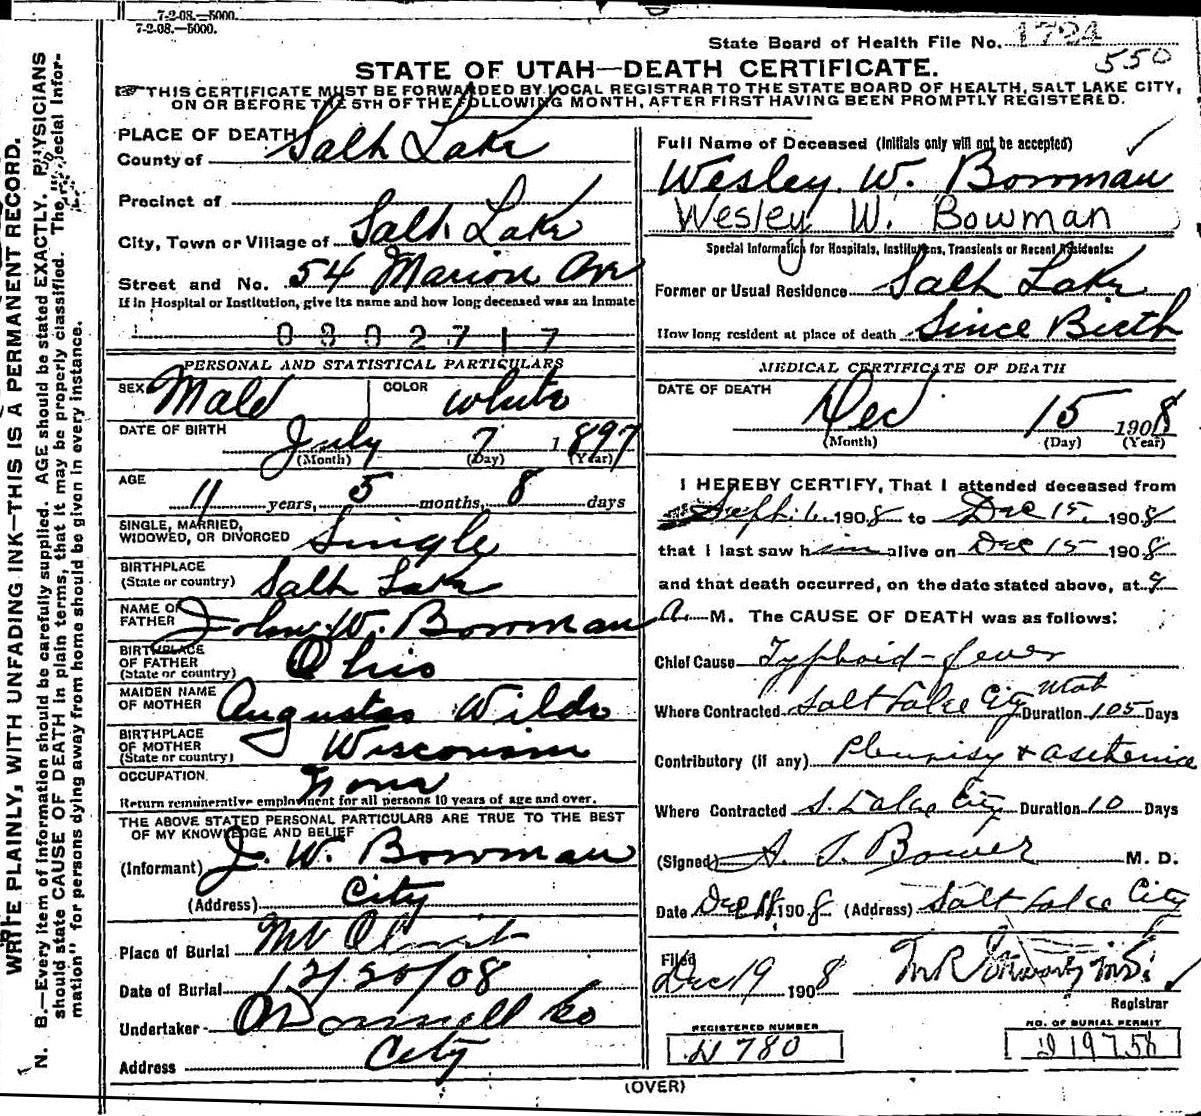 7-2-08.—5000.
7-2-08.—5000.
State Board of Health File No. 1724
550
STATE OF UTAH—DEATH CERTIFICATE.
THIS CERTIFICATE MUST BE FORWARDED BY LOCAL REGISTRAR TO THE STATE BOARD OF HEALTH, SALT LAKE CITY,
ON OR BEFORE THE 5TH OF THE FOLLOWING MONTH, AFTER FIRST HAVING BEEN PROMPTLY REGISTERED.
WRITE PLAINLY, WITH UNFADING INK—THIS IS A PERMANENT RECORD.
N. B.—Every item of information should be carefully supplied. AGE should be stated EXACTLY. PHYSICIANS
should state CAUSE OF DEATH in plain terms, that it may be properly classified. The "Special Infor-
mation" for persons dying away from home should be given in every instance.
PLACE OF DEATH
County of Salt Lake
Precinct of
City, Town or Village of Salt Lake
Street and No. 54 Marion Ave
If in Hospital or Institution, give its name and how long deceased was an inmate
0302717
PERSONAL AND STATISTICAL PARTICULARS
SEX Male COLOR White
DATE OF BIRTH
July 7 1897
(Month) (Day) (Year)
AGE
11 years, 5 months, 8 days
SINGLE, MARRIED,
WIDOWED, OR DIVORCED Single
BIRTHPLACE
(State or country) Salt Lake
NAME OF
FATHER John W. Bowman
BIRTHPLACE
OF FATHER
(State or country) Ohio
MAIDEN NAME
OF MOTHER Augustas Wilde
BIRTHPLACE
OF MOTHER
(State or country) Wisconsin
OCCUPATION None
Return remunerative employment for all persons 10 years of age and over.
THE ABOVE STATED PERSONAL PARTICULARS ARE TRUE TO THE BEST
OF MY KNOWLEDGE AND BELIEF
(Informant) J. W. Bowman
(Address) City
Place of Burial Mt Olivet
Date of Burial 12/20/08
Undertaker O'Donnell & Co
Address City
Full Name of Deceased (Initials only will not be accepted)
Wesley W. Bowman
Wesley W. Bowman
Special Information for Hospitals, Institutions, Transients or Recent Residents:
Former or Usual Residence Salt Lake
How long resident at place of death Since Birth
MEDICAL CERTIFICATE OF DEATH
DATE OF DEATH
Dec 15 1908
(Month) (Day) (Year)
I HEREBY CERTIFY, That I attended deceased from
Sept. 1 1908 to Dec 15 1908
that I last saw him alive on Dec 15 1908
and that death occurred, on the date stated above, at 9
a. M. The CAUSE OF DEATH was as follows:
Chief Cause Typhoid-fever
Where Contracted Salt Lake City Utah Duration 105 Days
Contributory (if any) Pleurisy & asthenia
Where Contracted S. Lake City Duration 10 Days
(Signed) A. J. Bower M. D.
Date Dec 18 1908 (Address) Salt Lake City
Filed
Dec 19 1908 M R
Registrar
REGISTERED NUMBER
D 780
NO. OF BURIAL PERMIT
D 19758
(OVER)